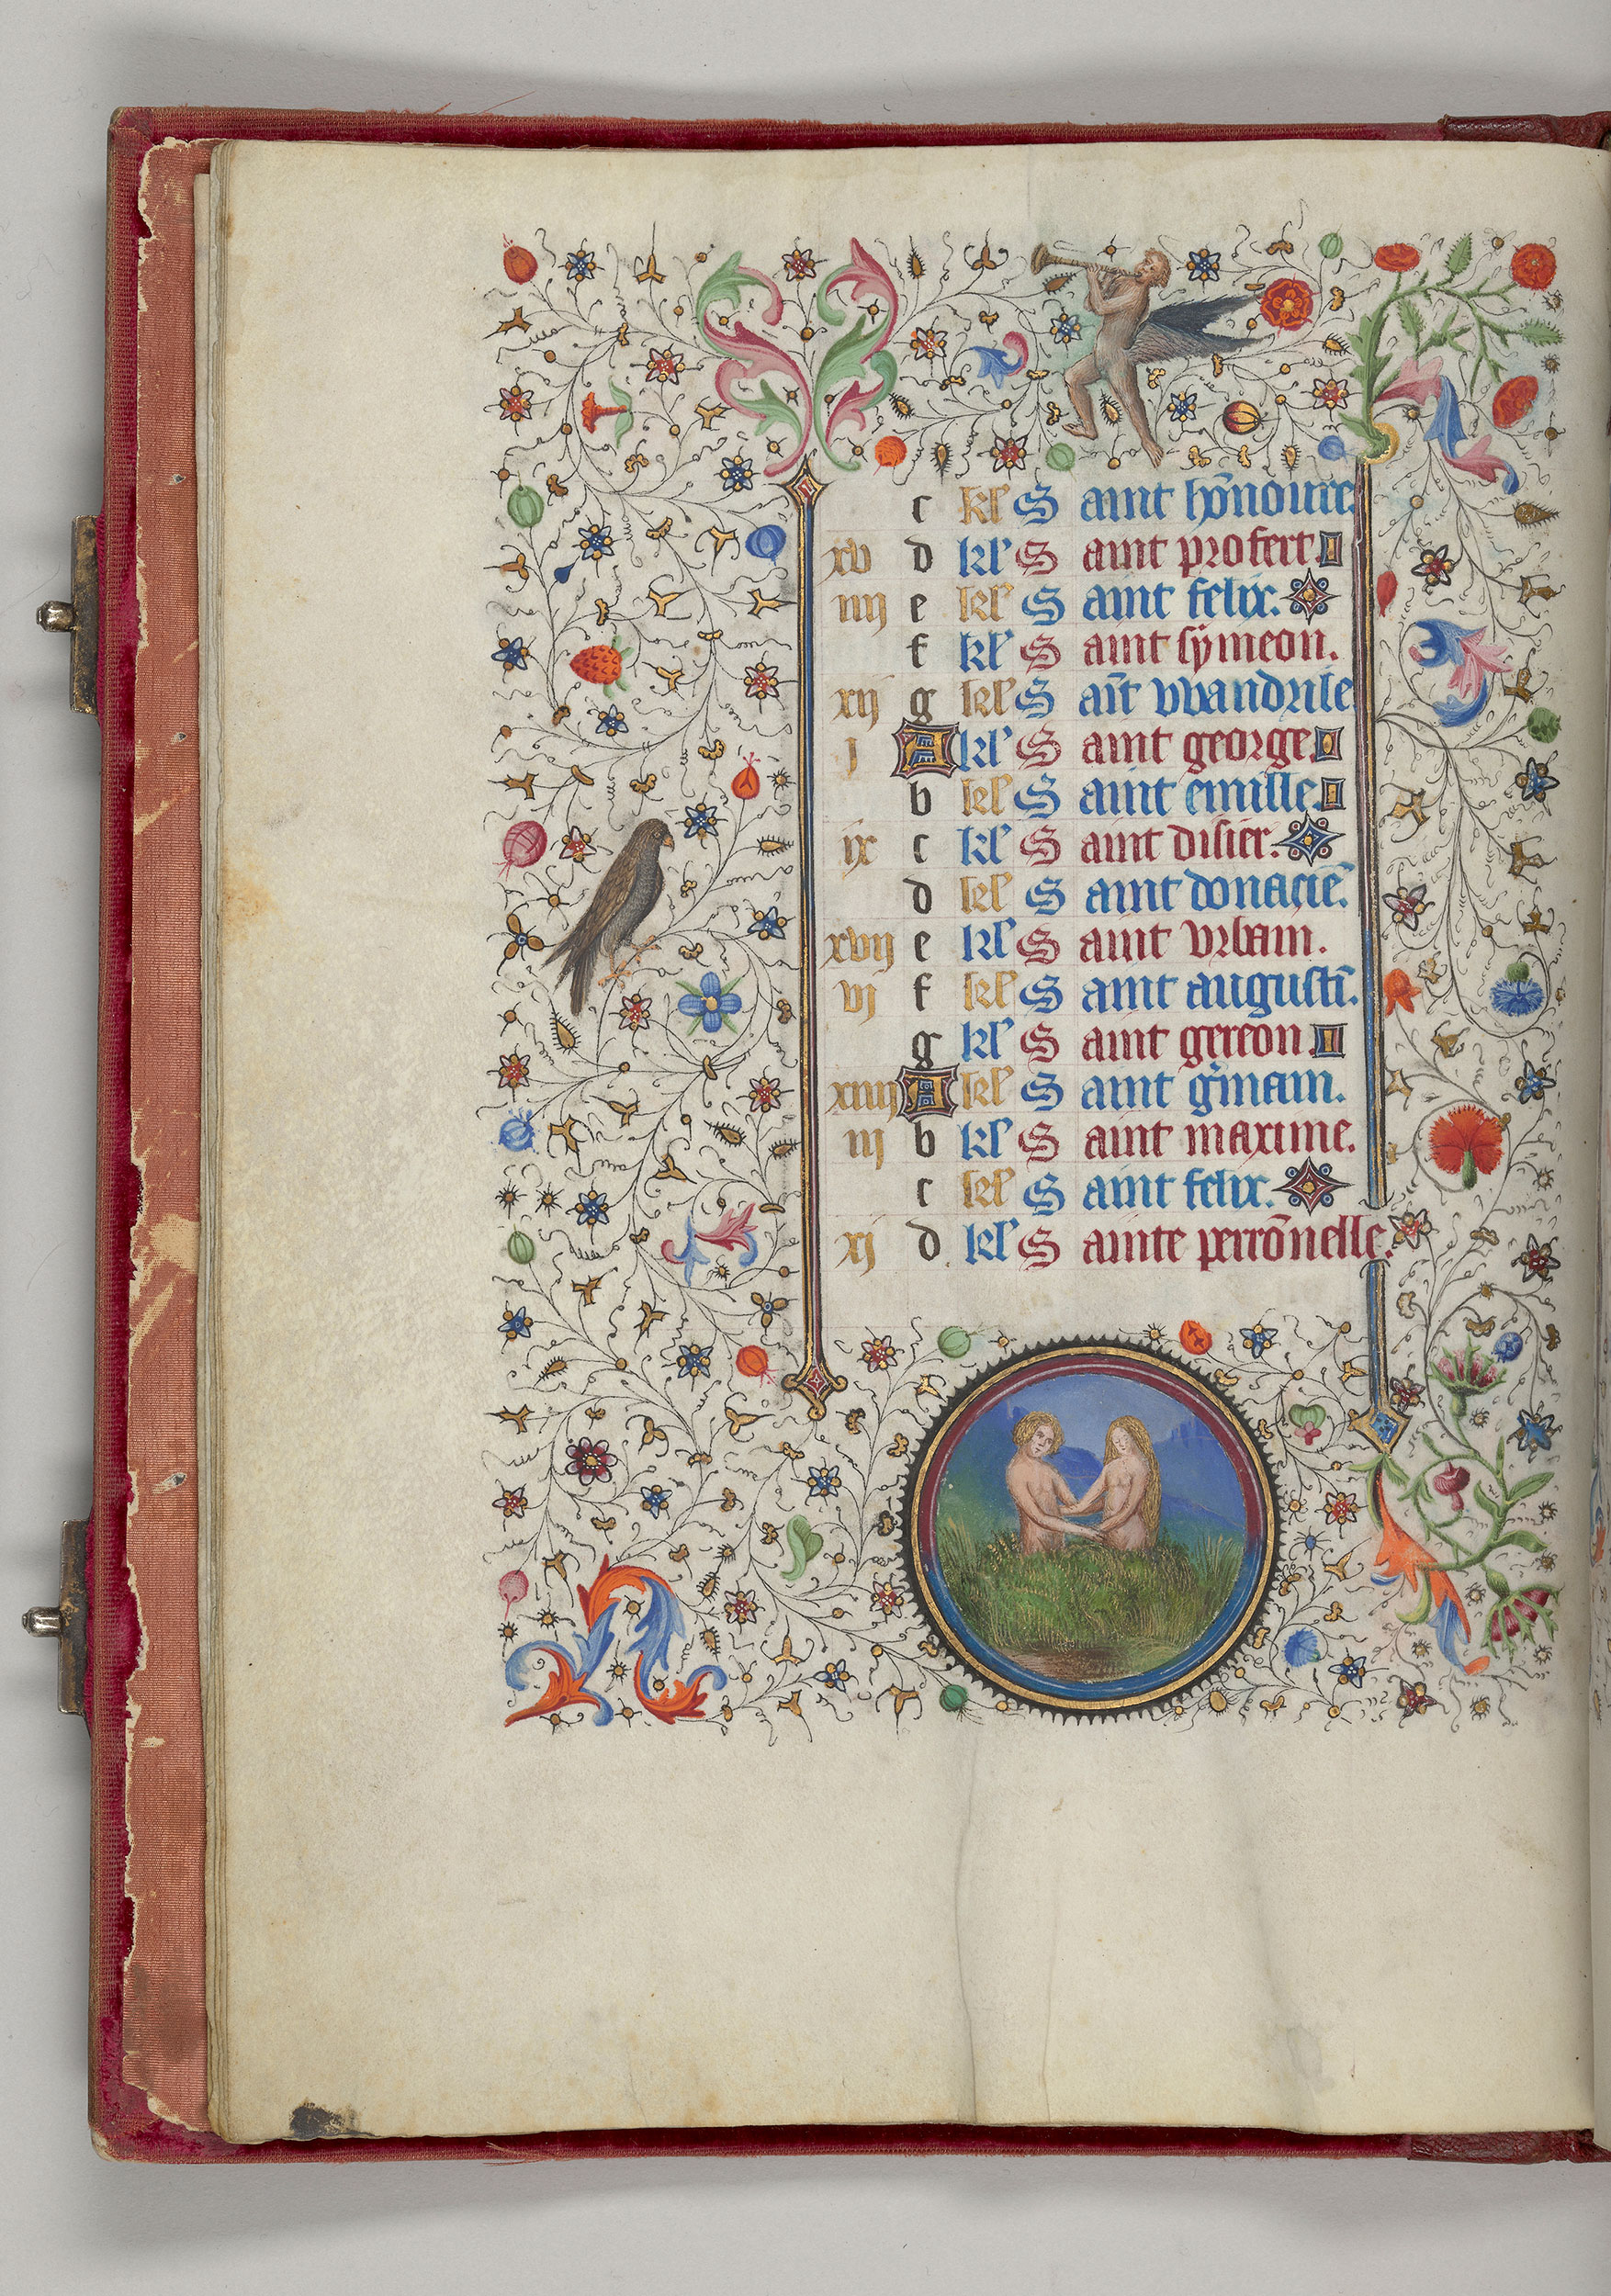 c kl' S aint hōnoure.
xv d kl' S aint profert.
iiij e kl' S aint felix.
f kl' S aint symeon.
xij g kl' S aīt vvandrile
j A kl' S aint george.
b kl' S aint emille.
ix c kl' S aint disier.
d kl' S aint donaciē.
xvij e kl' S aint vrbain.
vj f kl' S aint augustī.
g kl' S aint gereon.
xiiij A kl' S aint ḡmain.
iij b kl' S aint maxime.
c kl' S aint felix.
xj d kl' S ainte perrōnelle.